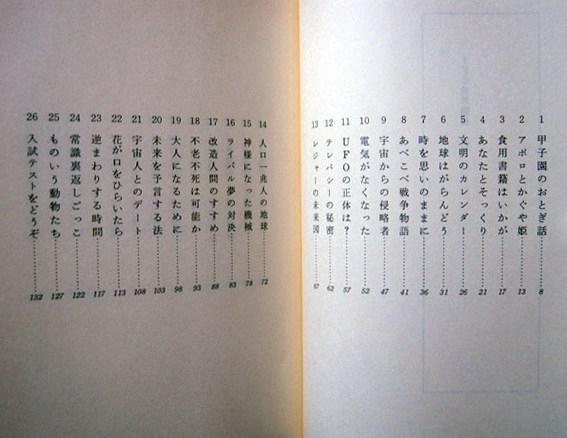 1 甲子園のおとぎ話 8
2 アポロとかぐや姫 13
3 食用書籍はいかが 17
4 あなたとそっくり 21
5 文明のカレンダー 26
6 地球はがらんどう 31
7 時を思いのままに 36
8 あべこべ戦争物語 41
9 宇宙からの侵略者 47
10 電気がなくなった 52
11 UFOの正体は? 57
12 テレパシーの秘密 62
13 レジャーの未来図 67
14 人口一兆人の地球 72
15 神様になった機械 78
16 ライバル夢の対決 83
17 改造人間のすすめ 88
18 不老不死は可能か 93
19 大人になるために 98
20 未来を予言する法 103
21 宇宙人とのデート 108
22 花が口をひらいたら 113
23 逆まわりする時間 117
24 常識裏返しごっこ 122
25 ものいう動物たち 127
26 入試テストをどうぞ 132